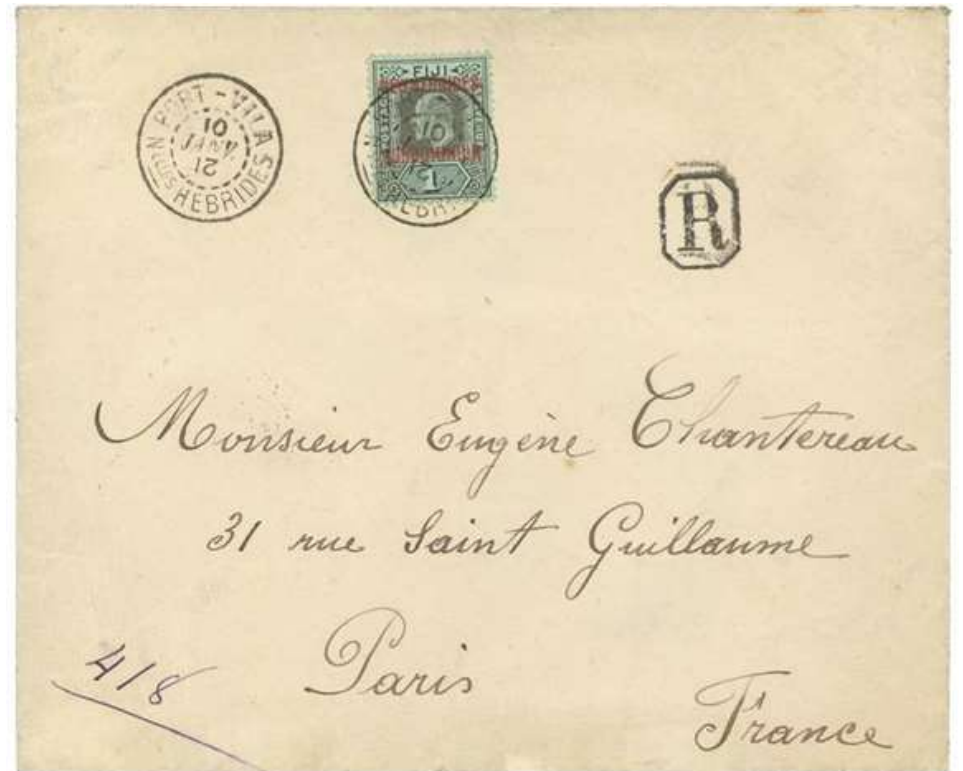 PORT-VILA
10
JANV
12
Nlles HEBRIDES
FIJI
POSTAGE
NEW HEBRIDES
CONDOMINIUM
1
HEBR
R
Monsieur Eugène Chantereau
31 rue Saint Guillaume
Paris
France
418